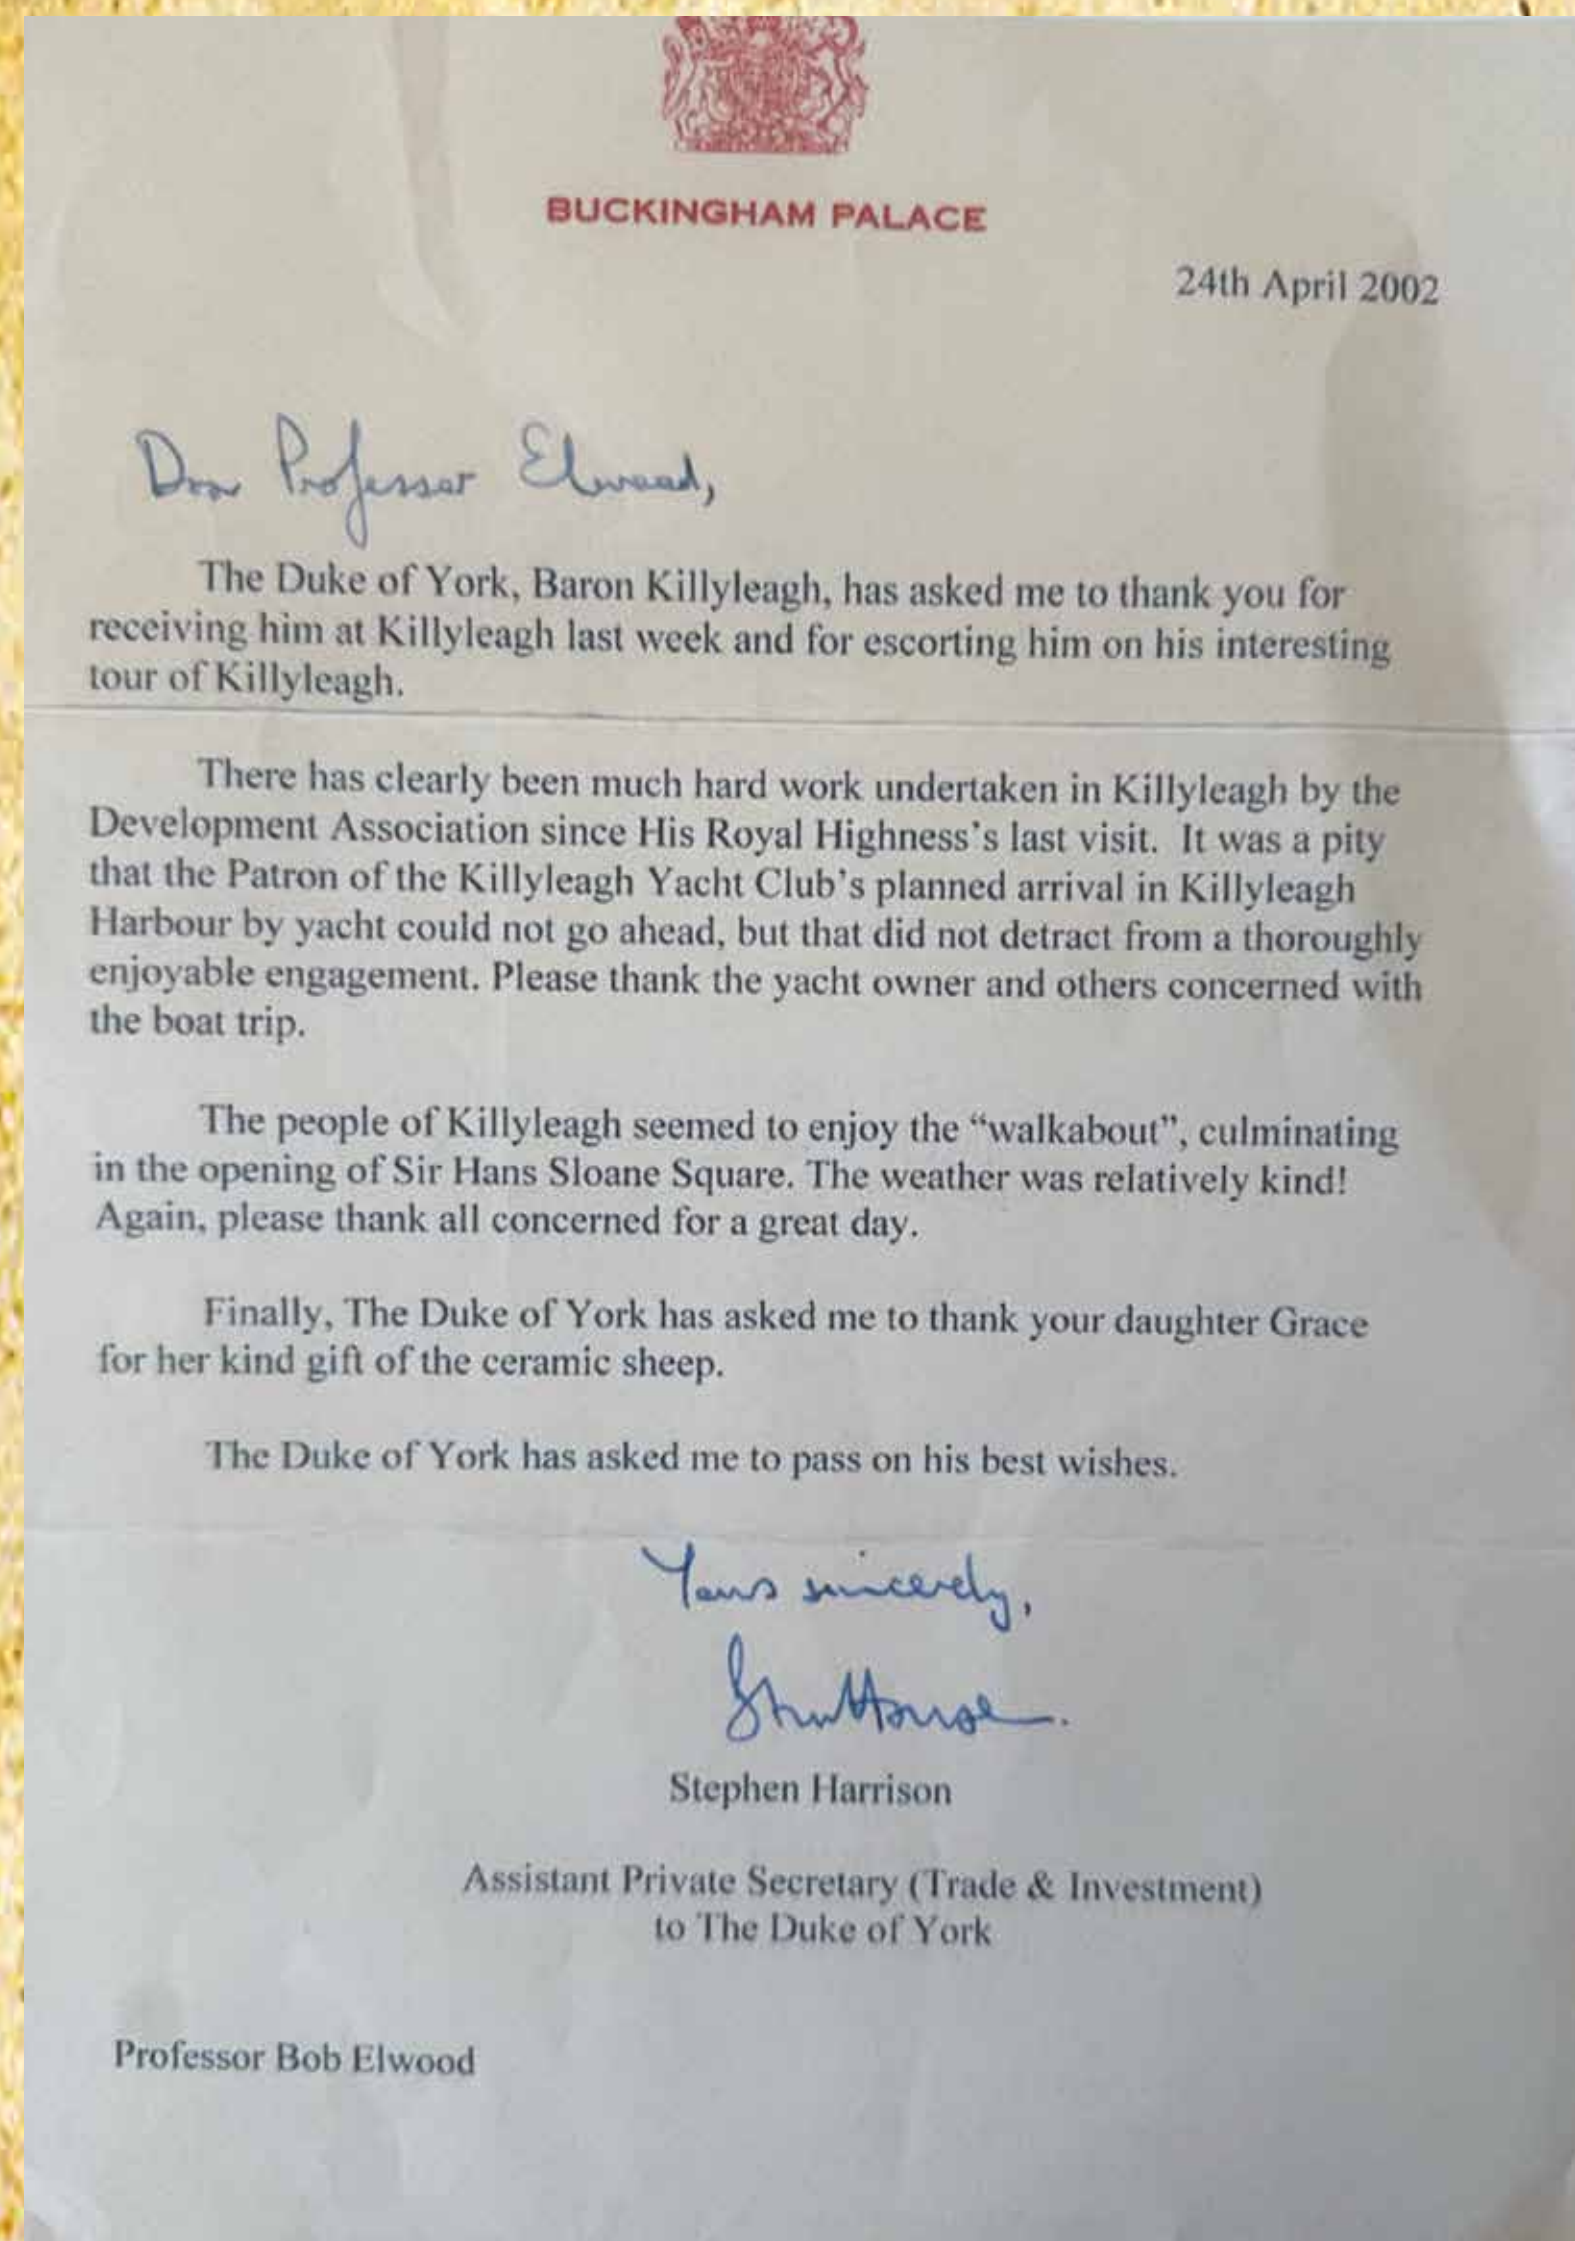 BUCKINGHAM PALACE
24th April 2002
Dear Professor Elwood,
The Duke of York, Baron Killyleagh, has asked me to thank you for
receiving him at Killyleagh last week and for escorting him on his interesting
tour of Killyleagh.
There has clearly been much hard work undertaken in Killyleagh by the
Development Association since His Royal Highness's last visit. It was a pity
that the Patron of the Killyleagh Yacht Club's planned arrival in Killyleagh
Harbour by yacht could not go ahead, but that did not detract from a thoroughly
enjoyable engagement. Please thank the yacht owner and others concerned with
the boat trip.
The people of Killyleagh seemed to enjoy the “walkabout”, culminating
in the opening of Sir Hans Sloane Square. The weather was relatively kind!
Again, please thank all concerned for a great day.
Finally, The Duke of York has asked me to thank your daughter Grace
for her kind gift of the ceramic sheep.
The Duke of York has asked me to pass on his best wishes.
Yours sincerely,
Stephen Harrison
Assistant Private Secretary (Trade & Investment)
to The Duke of York
Professor Bob Elwood